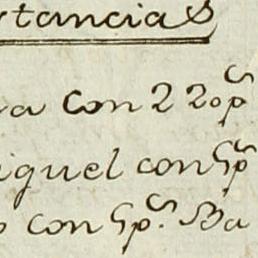 rtancias
a con 220 p^s
iguel con 5 p^s
o con 5 p^s. Ba